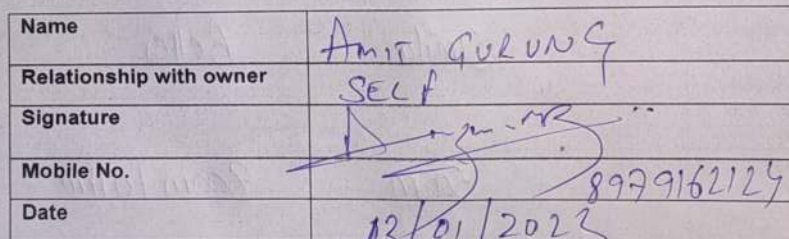 Name AMIT GURUNG
Relationship with owner SELF
Signature
Mobile No. 8979162124
Date 12/01/2022